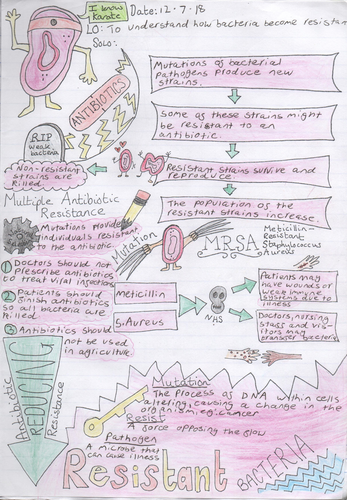 I know
Karate
Date: 12.7.18
LO: To understand how bacteria become resistan
Solo:
ANTIBIOTICS
Mutations of bacterial
pathogens produce new
strains.
Some of these strains might
be resistant to an
antibiotic.
RIP
weak
bacteria
Non-resistant
strains are
killed.
Resistant strains survive and
reproduce
The population of the
resistant strains increase.
Multiple Antibiotic
Resistance
Mutations provide
individuals resistant
to the antibiotic
Mutation
MRSA
Meticillin-
Resistant
Staphylococcus
Aureus
1 Doctors should not
prescribe antibiotics
to treat viral infections
2 Patients should
finish antibiotics
so all bacteria are
killed
3 Antibiotics should
not be used
in agriculture
Meticillin
S. Aureus
NHS
Patients may
have wounds or
weak immune
systems due to
illness
Doctors, nursing
staff and vis-
itors may
transfer bacteria
Antibiotic
REDUCING
Resistance
Mutation
The process of DNA within cells
altering, causing a change in the
organism, eg. cancer
Resist
A force opposing the flow
Pathogen
A microbe that
can cause illness
Resistant
BACTERIA